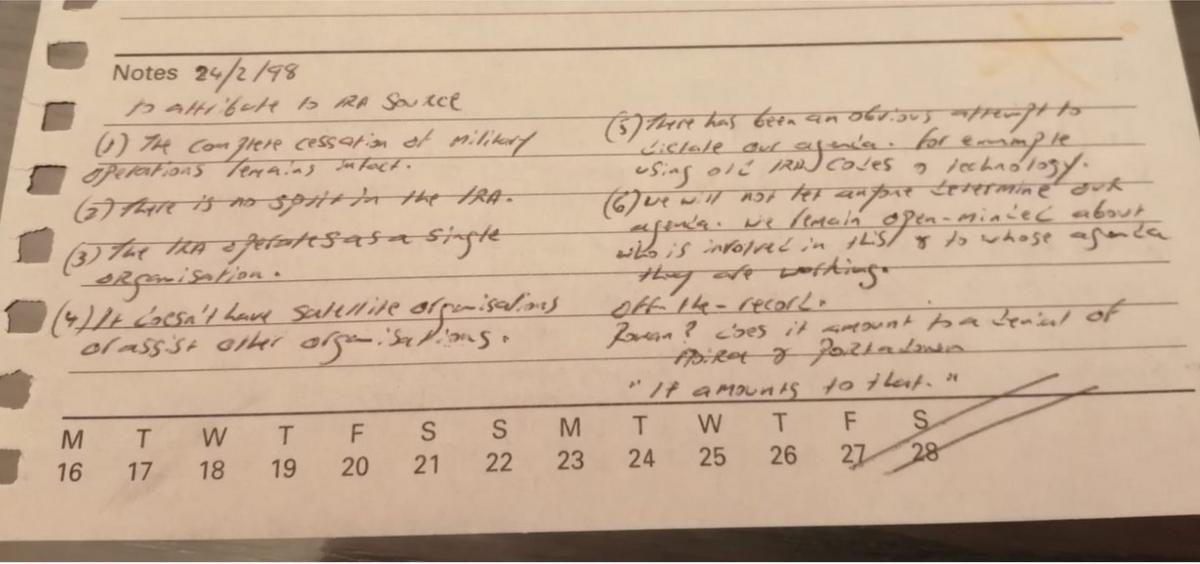 Notes 24/2/98
to attribute to IRA source
(1) The complete cessation of military
operations remains intact.
(2) There is no split in the IRA.
(3) The IRA operates as a single
organisation.
(4) It doesn't have satellite organisations
or assist other organisations.
(5) There has been an obvious attempt to
dictate our agenda. For example
using old IRA codes & technology.
(6) We will not let anyone determine our
agenda. We remain open-minded about
who is involved in this & to whose agenda
they are working.
Off-the-record.
Rowan? Does it amount to a denial of
Moira & Portadown
"It amounts to that."
M T W T F S S M T W T F S
16 17 18 19 20 21 22 23 24 25 26 27 28